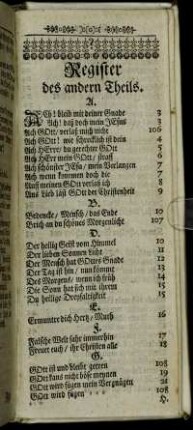 Register
des andern Theils.
A.
Ach! bleib mit deiner Gnade 3
Ach! daß doch mein JEsus 3
Ach GOtt, verlaß mich nicht 106
Ach GOtt! wie schrecklich ist dein 4
Ach HErre! du gerechter GOtt 5
Ach HErr mein GOtt, straff
Ach schönster JEsu, mein Verlangen 7
Ach wenn kommen doch die 7
Auf meinen GOtt verlaß ich 8
Aus Lieb läßt GOtt der Christenheit 9
B.
Bedencke, Mensch, das Ende 10
Brich an du schönes Morgenlicht 107
D.
Der heilig Geist vom Himmel 10
Der lieben Sonnen Licht 10
Der Mensch hat GOttes Gnade 11
Der Tag ist hin, nun kömmt 12
Des Morgens, wenn ich früh 12
Die Sonn hat sich mit ihrem 14
Du heilige Dreyfaltigkeit 15
E.
Ermuntre dich Hertz, Muth 16
F.
Falsche Welt fahr immerhin 17
Freuet euch, ihr Christen alle 18
G.
GOtt ist und bleibt getreu 108
GOtt kans nicht böse meynen 19
GOtt wird fügen mein Vergnügen 21
GOtt wird fügen 108
H.